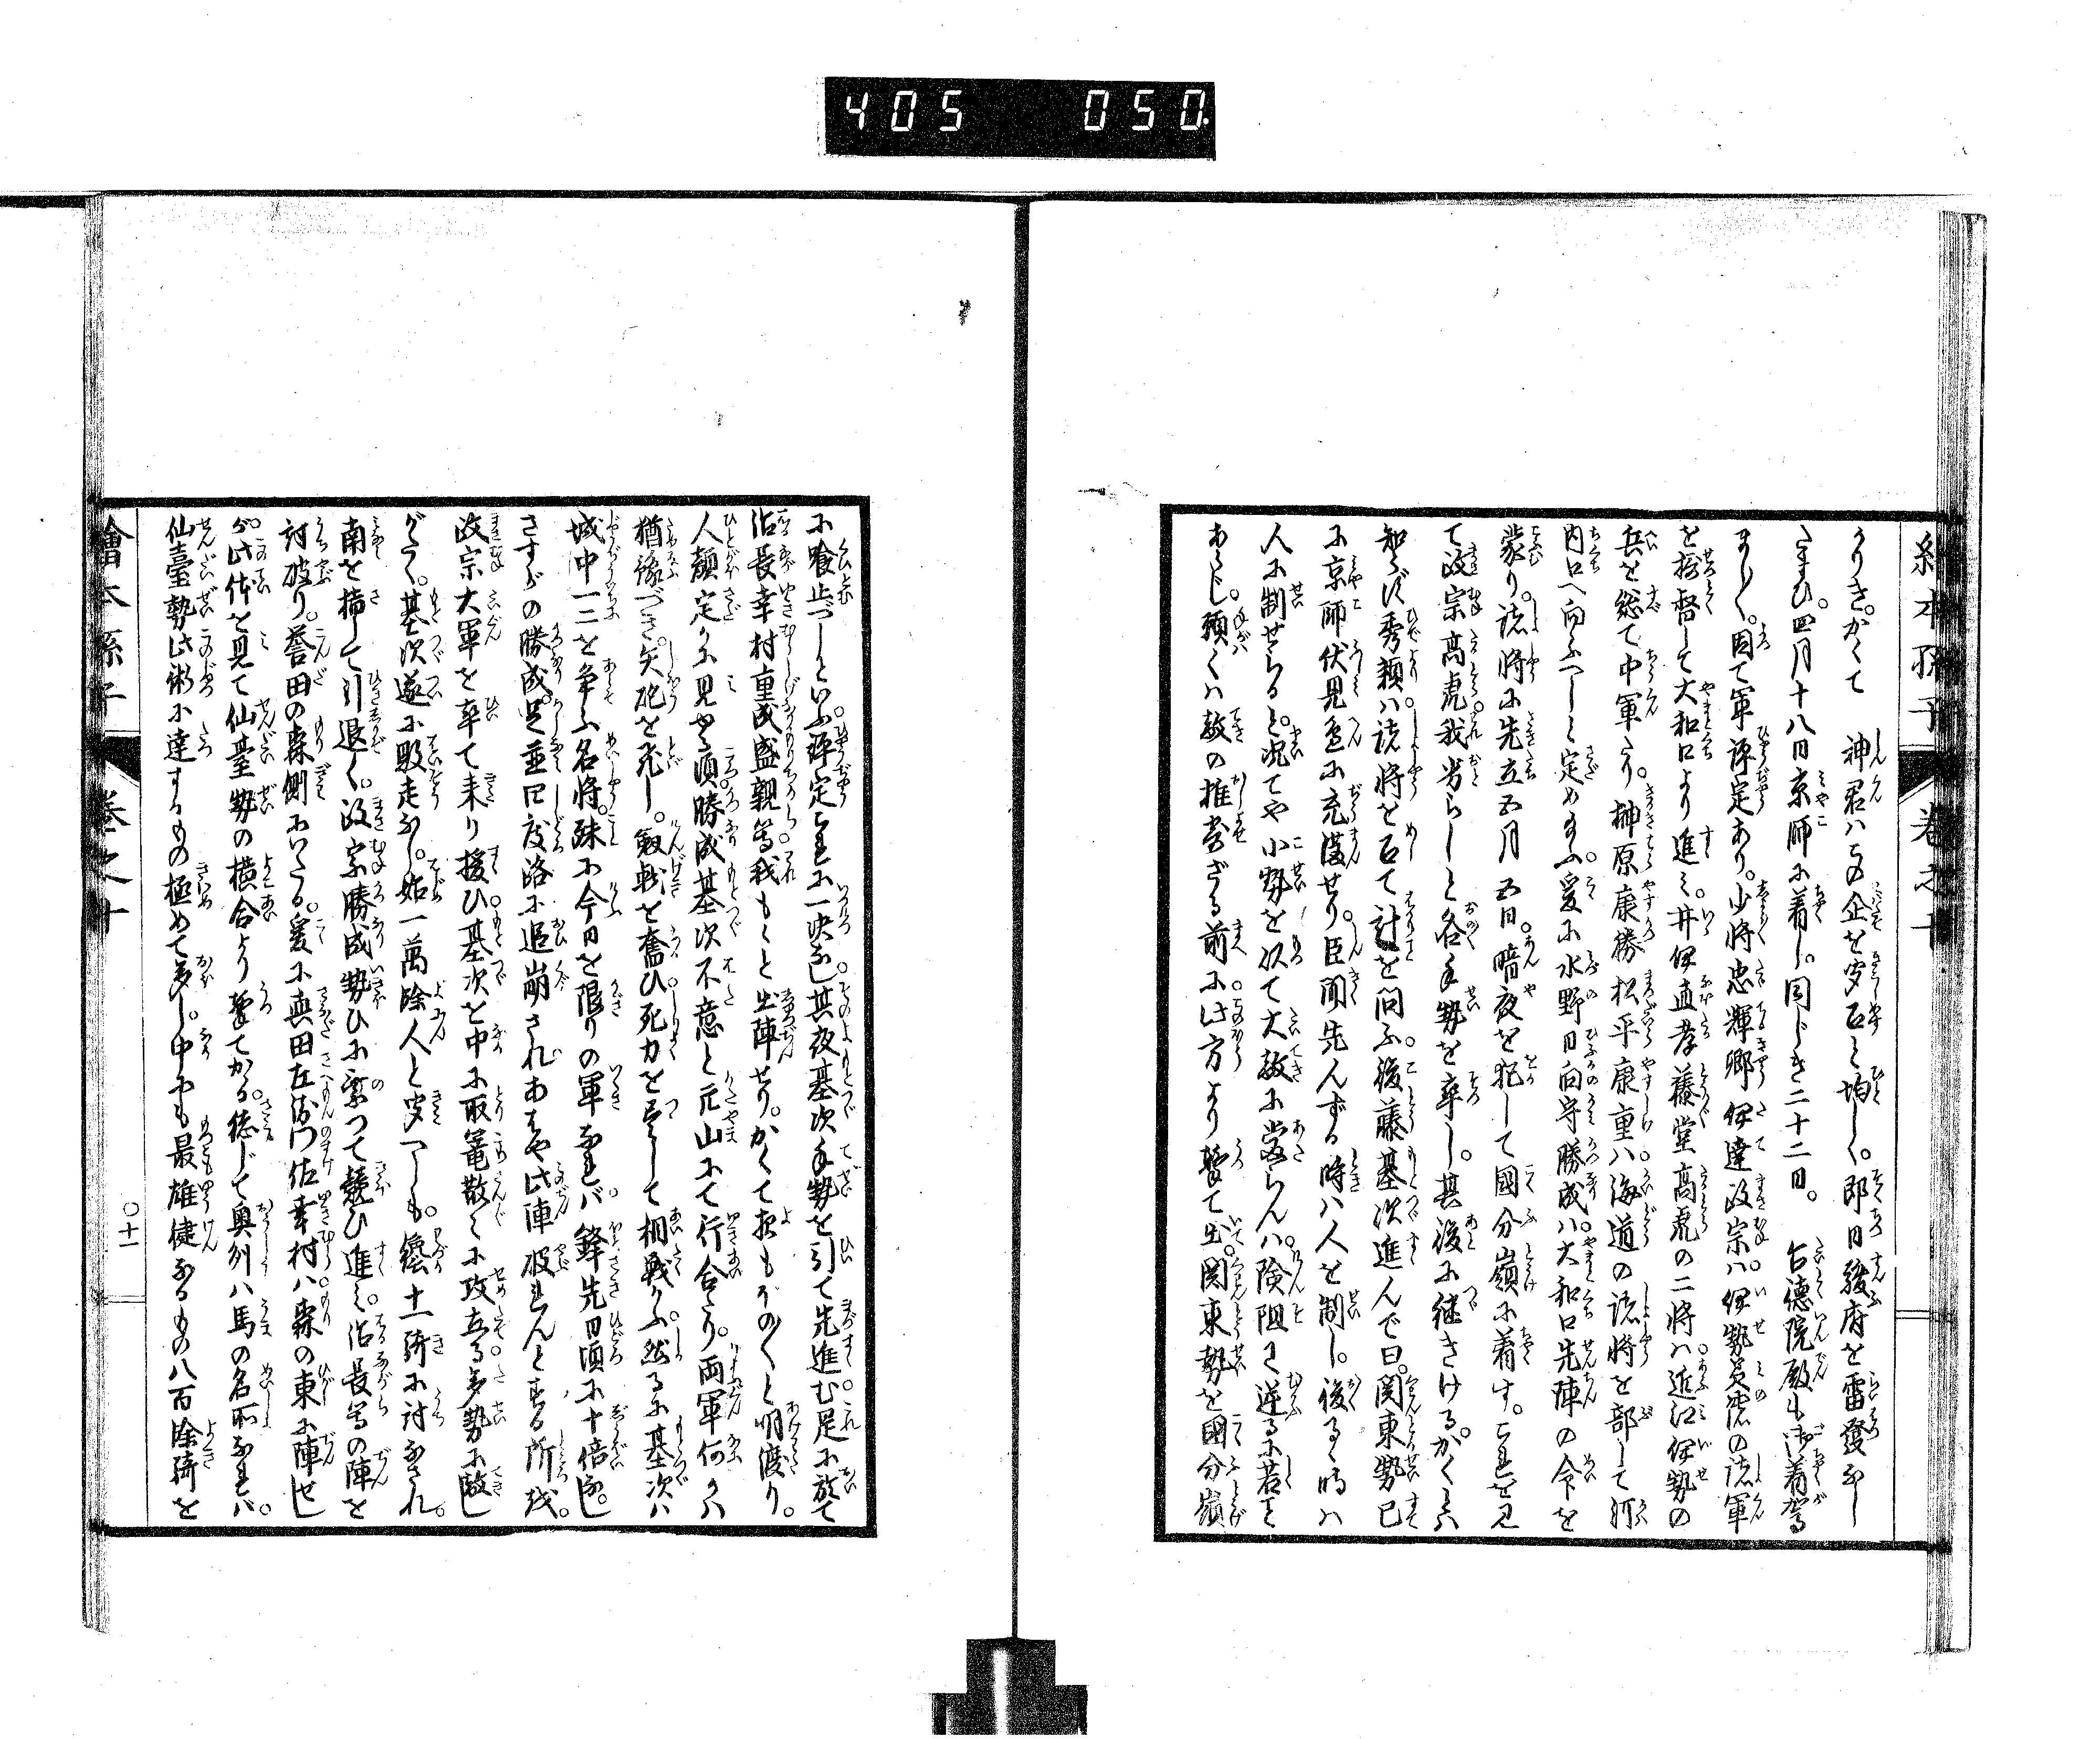 405 050.
繪本孫子 卷之十
うりき。かくて 神君ハ此企を安否と怕しく。即日駿府を雷發ありし
たまひ。四月十八日京師に着し。同じき二十二日。 台德院殿も御着駕
まし〳〵。因て軍評定あり。少將忠輝卿伊達政宗ハ。伊勢美濃の諸軍
を揔督して大和口より進ミ。井伊直孝藤堂高虎の二將ハ。近江伊勢の
兵を総て中軍たり。榊原康勝松平康重ハ。海道の諸將を部して河
内口へ向ふべしと定め玉ふ。爰に水野日向守勝成ハ。大和口先陣の命を
蒙り。諸將に先立五月五日。暗夜を犯して國分嶺に着す。これを見
て政宗高虎。我劣らしと各手勢を率し。其後に継きける。かくとハ
知らず秀頼ハ。諸將を召て計を問ふ。後藤基次進んで曰。関東勢已
に京師伏見邊に充満せり。臣聞先んずる時ハ人を制し。後るゝ時ハ
人に制せらると。况てや小勢を以て大敵に當らんハ。険阻に逆るに若ミ
あらじ。願くハ敵の推寄ざる前に。此方より撃て出。関東勢を國分嶺
に喰止べしといふ。評定これに一决なし。其夜基次手勢を引て先進む。是に於て
治長幸村重成盛親等。我もくと出陣せり。かくて夜もほの〳〵と明渡り。
人顔定かに見ゆる頃。勝成基次不意と元山にて行合たり。両軍何かハ
猶豫べき。矢砲を飛し。剱戟を奮ひ。死力を尽して相戰ふ。然るに基次ハ
城中一二を争ふ名將。殊に今日を限りの軍なれバ。鋒先日頃に十倍なし。
さすがの勝成。足並四度路に追崩され。あはや此陣破れんとする所。
政宗大軍を率て来り援ひ。基次を中に取篭。散々に攻立る多勢に敵し
がたく。基次遂に敗走なし。始一萬餘人と聞へしも。纔十一騎に討なされ。
南を指して引退く。政宗勝成勢ひに乗つて競ひ進ミ。治長等の陣を
討破り。誉田の森側にいたる。爰に真田左衛門佐幸村ハ。森の東に陣せし
が。此体を見て仙臺勢の横合より撃てかゝる。惣じて奥州ハ馬の名所なれバ。
仙臺勢此術に達するもの極めて多し。中にも最雄健なるもの八百餘騎を
繪本孫子 卷之十 〇十一